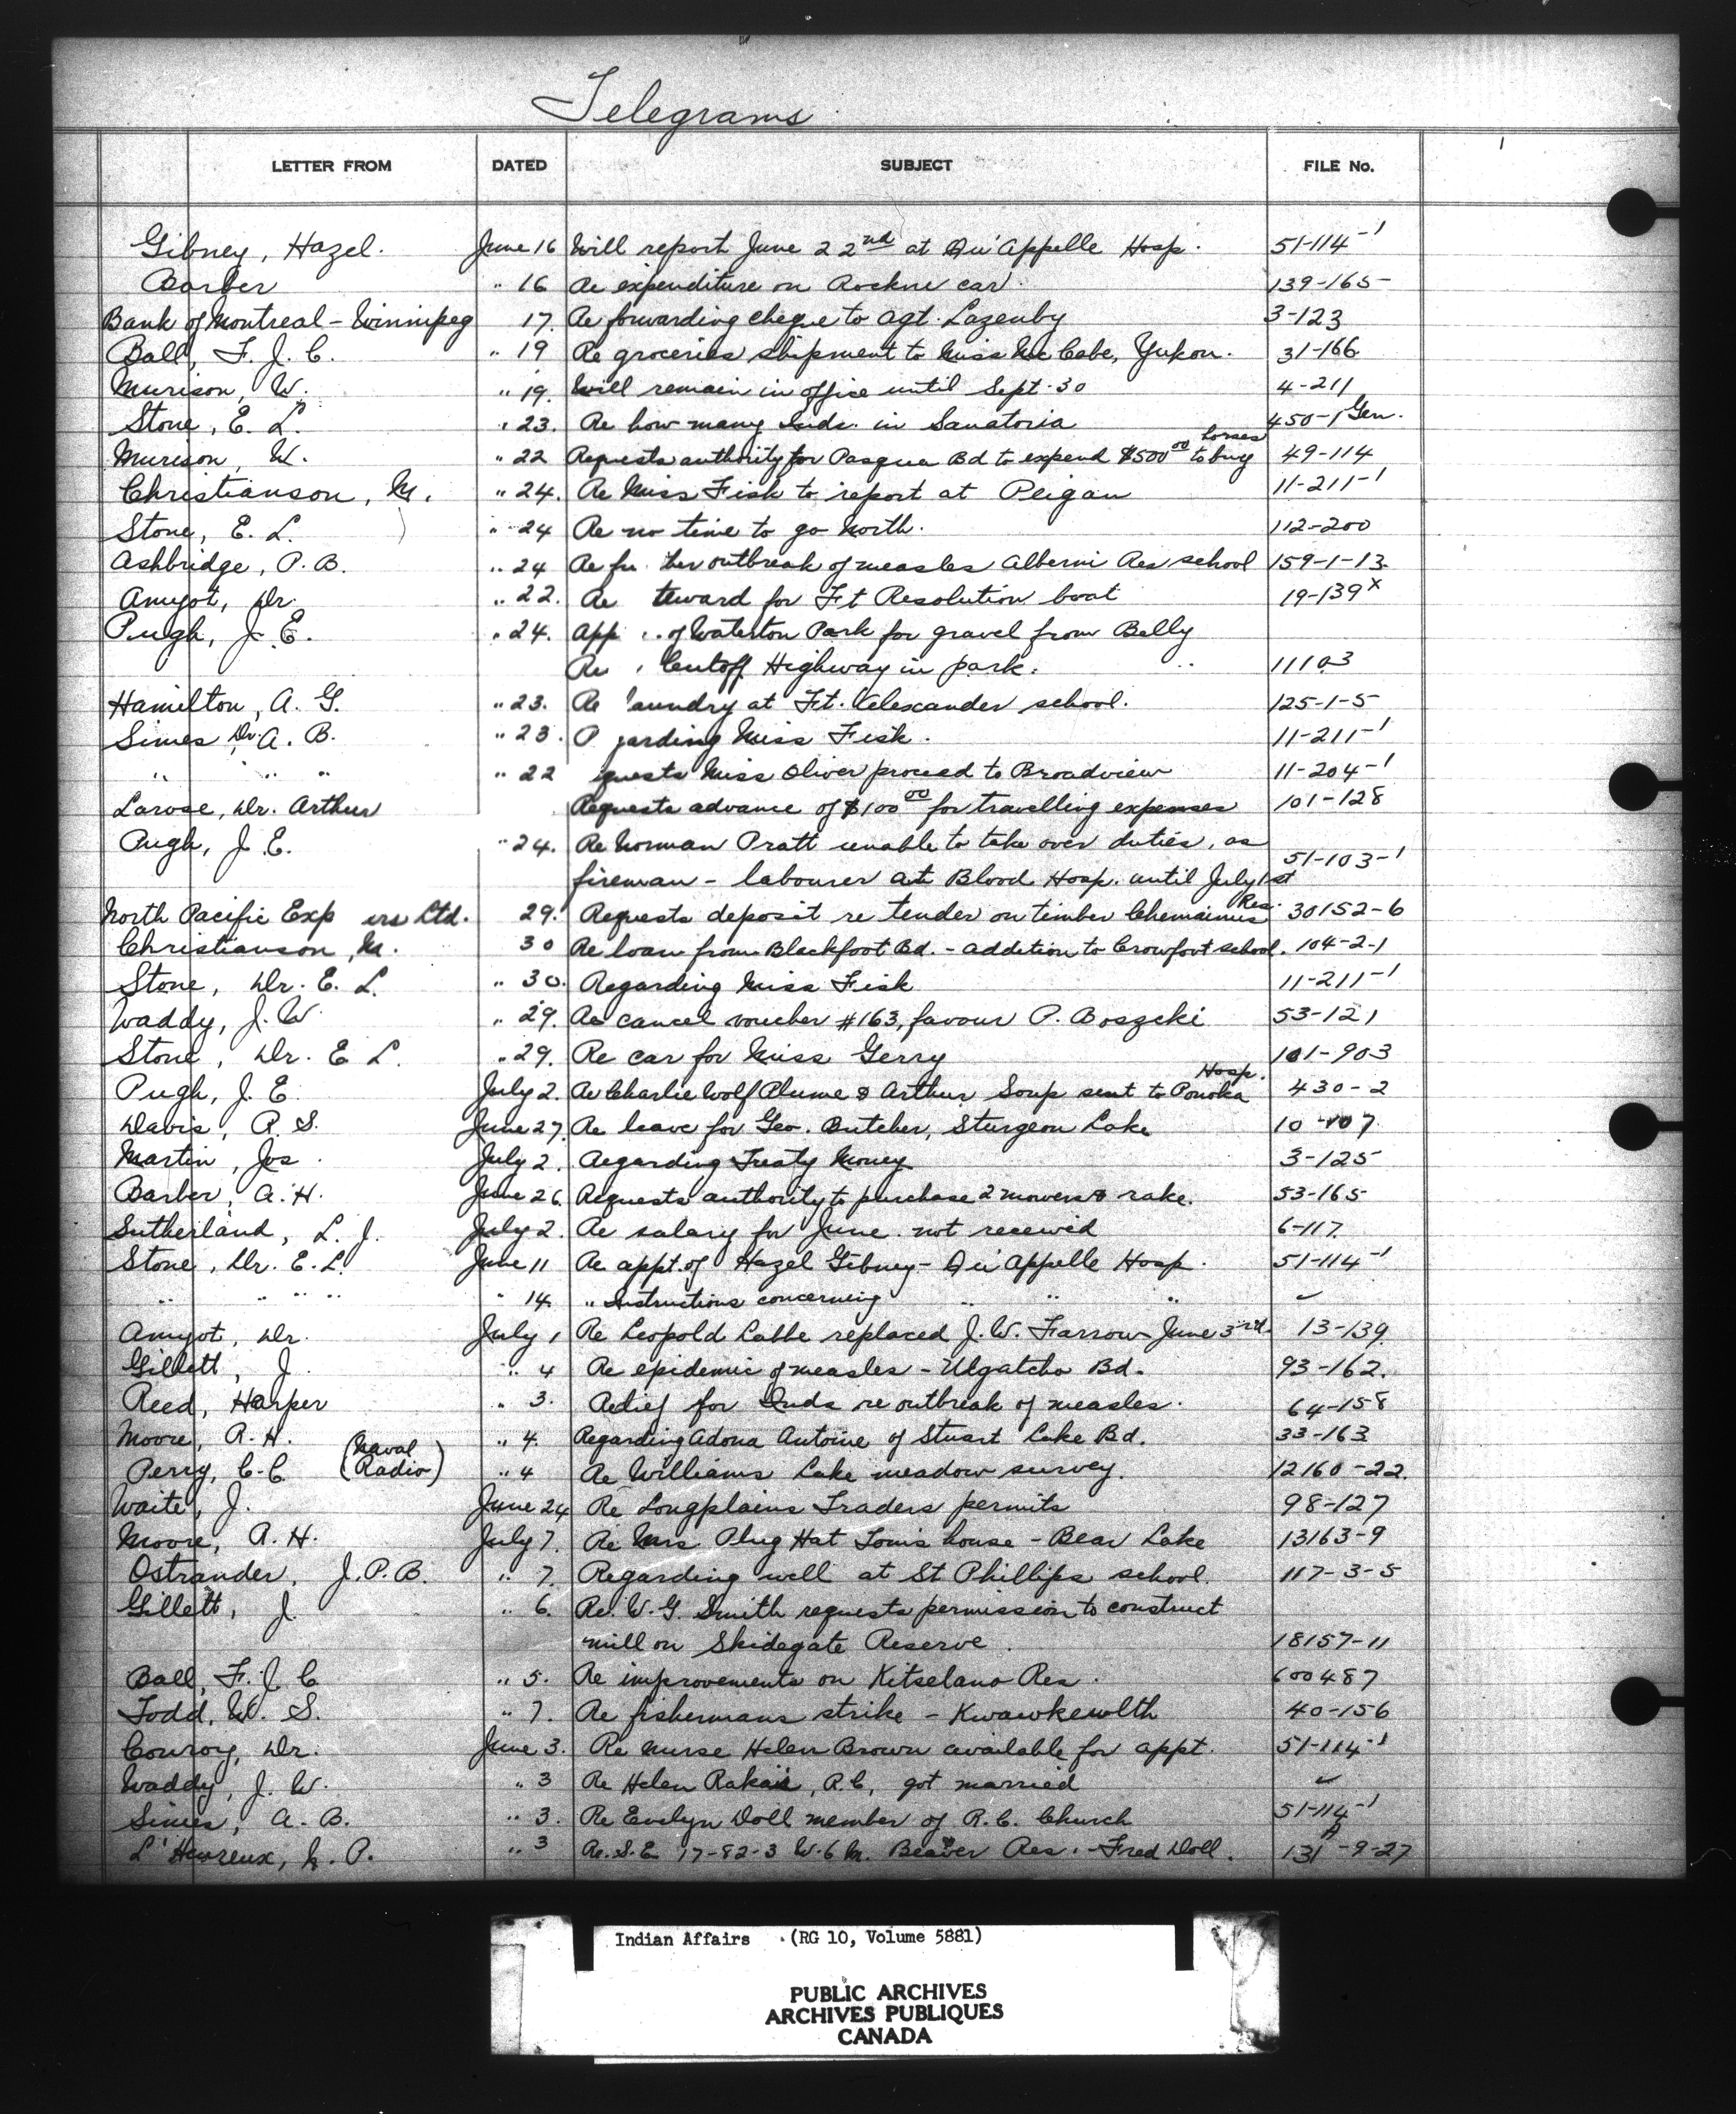 Telegrams
LETTER FROM DATED SUBJECT FILE No.
Gibney, Hazel. June 16 Will report June 22nd at Qu'Appelle Hosp. 51-114-1
Barber " 16 Re expenditure on Rockne car 139-165-
Bank of Montreal - Winnipeg 17. Re forwarding cheque to Agt. Lazenby 3-123
Ball, F. J. C. " 19 Re groceries shipment to Miss McCabe, Yukon. 31-166
Murison, W. " 19. Will remain in office until Sept. 30 4-211
Stone, E. L. " 23. Re how many Inds. in Sanatoria 450-1 Gen.
Murison, W. " 22 Requests authority for Pasqua Bd to expend $500 00 to buy horses 49-114
Christianson, M. " 24. Re Miss Fisk to report at Peigan 11-211-1
Stone, E. L. " 24 Re no time to go North. 112-200
Ashbridge, P. B. " 24 Re fu ther outbreak of measles Alberni Res school 159-1-13
Amyot, Dr. " 22. Re teward for Ft Resolution boat 19-139x
Pugh, J. E. " 24. App . of Waterton Park for gravel from Belly
Re Cutoff Highway in park. 11103
Hamilton, A. G. " 23. Re laundry at Ft. Alexander school. 125-1-5
Simes, Dr. A. B. " 23. garding Miss Fisk. 11-211-1
" " " " 22 quests Miss Oliver proceed to Broadview 11-204-1
Larose, Dr. Arthur Requests advance of $100 00 for travelling expenses 101-128
Pugh, J. E. " 24. Re Norman Pratt unable to take over duties, as
fireman - labourer at Blood Hosp. until July 1st 51-103-1
North Pacific Exp ers Ltd. 29. Requests deposit re tender on timber Chemainus Res. 30152-6
Christianson, M. 30 Re loan from Blackfoot Bd. - addition to Crowfoot school. 104-2-1
Stone, Dr. E. L. " 30. Regarding Miss Fisk 11-211-1
Waddy, J. W. " 29. Re cancel voucher #163, favour P. Boszcki 53-121
Stone, Dr. E L. " 29. Re car for Miss Gerry 101-903
Pugh, J. E. July 2. Re Charlie Wolf Plume & Arthur Soup sent to Ponoka Hosp. 430-2
Davis, R. S. June 27. Re leave for Geo. Butcher, Sturgeon Lake 10-107
Martin, Jos. July 2. Regarding Treaty Money 3-125
Barber, A. H. June 26. Requests authority to purchase 2 mowers & rake. 53-165
Sutherland, L. J. July 2. Re salary for June not received 6-117.
Stone, Dr. E. L. June 11 Re appt. of Hazel Gibney - Qu'Appelle Hosp. 51-114-1
" " " " " 14. " Instructions concerning " " " ✓
Amyot, Dr. July 1 Re Leopold Labbe replaced J. W. Farrow June 3rd 13-139.
Gillett, J. " 4 Re epidemic of measles - Ulgatcho Bd. 93-162.
Reed, Harper " 3. Relief for Inds re outbreak of measles. 64-158
Moore, R. H. " 4. Regarding Adona Antoine of Stuart Lake Bd. 33-163
Perry, C. C. (Naval Radio) " 4 Re Williams Lake meadow survey. 12160-22.
Waite, J. June 24 Re Longplains Traders permits 98-127
Moore, R. H. July 7. Re Mrs. Plug Hat Louis house - Bear Lake 13163-9
Ostrander, J. P. B. " 7. Regarding well at St Phillips school. 117-3-5
Gillett, J. " 6. Re. W. G. Smith requests permission to construct
mill on Skidegate Reserve. 18157-11
Ball, F. J. C " 5. Re improvements on Kitselano Res. 600487
Todd, W. S. " 7. Re fishermans strike - Kwawkewlth 40-156
Conroy, Dr. June 3. Re Nurse Helen Brown available for appt. 51-114-1
Waddy, J. W. " 3 Re Helen , R.C, got married ✓
Simes, A. B. " 3. Re Evelyn Doll member of R. C. Church 51-114-1
L'Heureux, N. P. " 3 Re. S.E 17-82-3 W. 6 M. Beaver Res. - Fred Doll. 131A-9-27
Indian Affairs (RG 10, Volume 5881)
PUBLIC ARCHIVES
ARCHIVES PUBLIQUES
CANADA